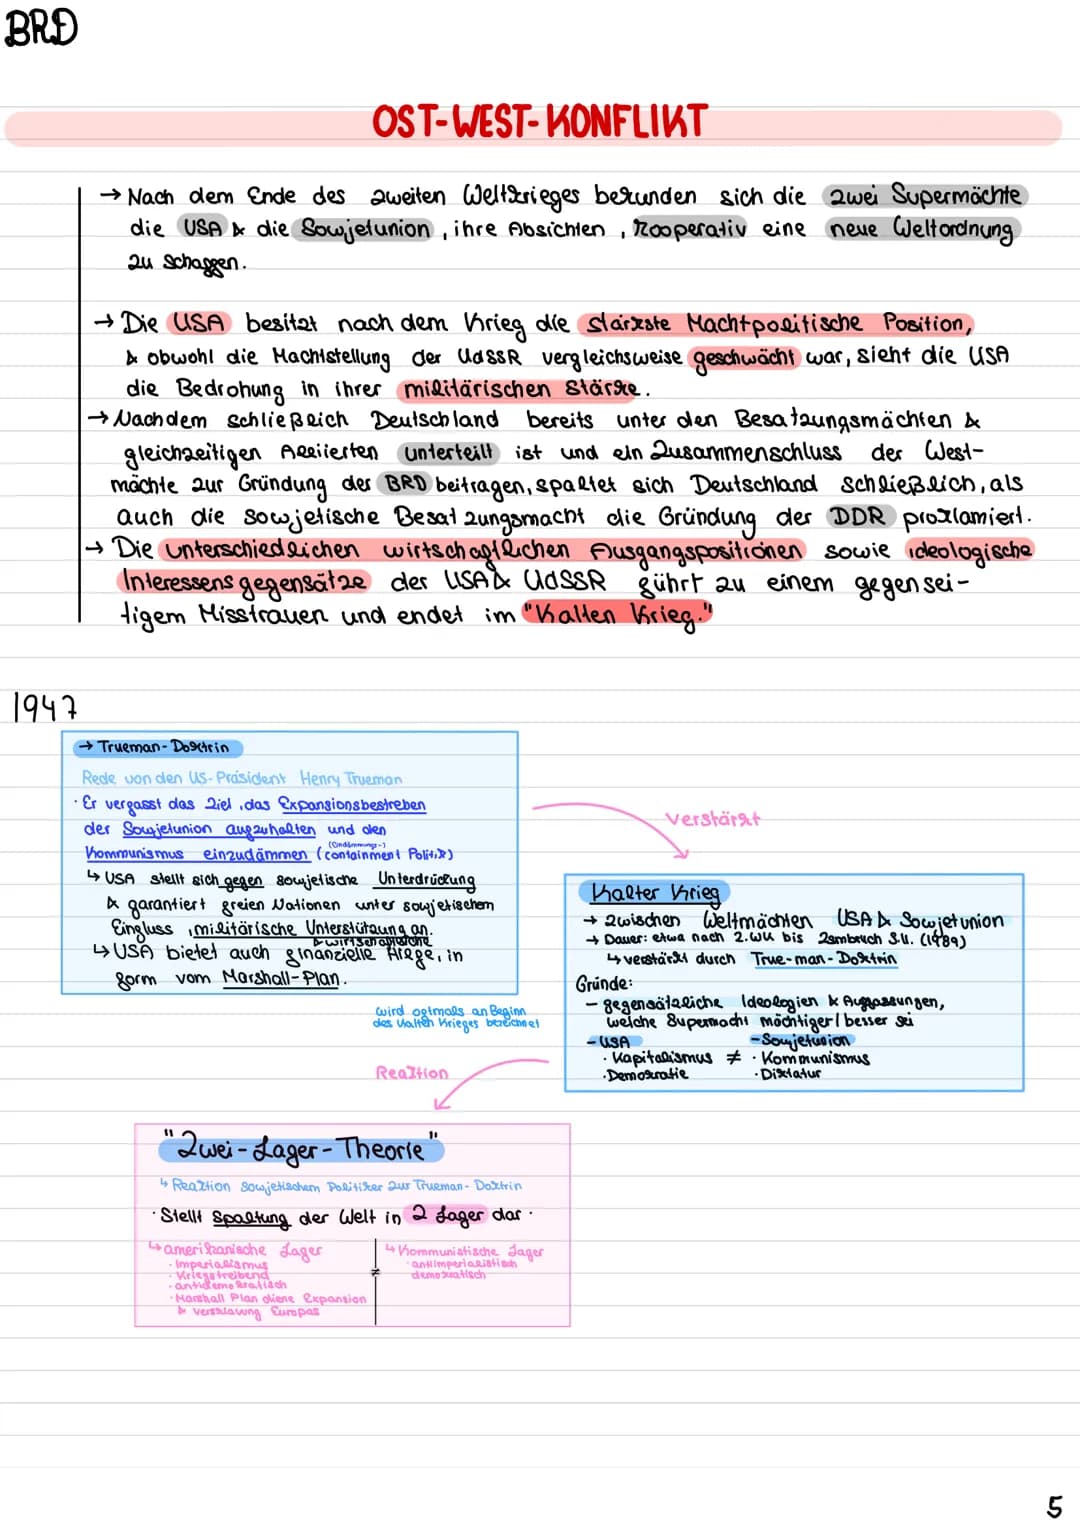 BRD
OST-WEST-KONFLIKT
→ Nach dem Ende des zweiten Weltkrieges bekunden sich die zwei Supermächte
die USA & die Sowjetunion, ihre Absichten, kooperativ eine neue Weltordnung
zu schaffen.
→ Die USA besitzt nach dem Krieg die stärkste Machtpolitische Position,
& obwohl die Machtstellung der UdSSR vergleichsweise geschwächt war, sieht die USA
die Bedrohung in ihrer militärischen Stärke.
→ Nachdem schließlich Deutschland bereits unter den Besatzungsmächten &
gleichzeitigen Alliierten unterteilt ist und ein Zusammenschluss der West-
mächte zur Gründung der BRD beitragen, spaltet sich Deutschland schließlich, als
auch die sowjetische Besatzungsmacht die Gründung der DDR proklamiert.
→ Die unterschiedlichen wirtschaftlichen Ausgangspositionen sowie ideologische
Interessensgegensätze der USA & UdSSR führt zu einem gegensei-
tigem Misstrauen und endet im "Kalten Krieg."
1947
→ Trueman-Doktrin
Rede von den US-Präsident Henry Trueman
· Er verfasst das Ziel, das Expansionsbestreben
der Sowjetunion aufzuhalten und den
(Eindämmungs-)
Kommunismus einzudämmen (containment Politik)
↳ USA stellt sich gegen sowjetische Unterdrückung
& garantiert freien Nationen unter sowjetischem
Einfluss, militärische Unterstützung an.
& wirtschaftliche
↳ USA bietet auch finanzielle Hilfe, in
form vom Marshall-Plan.
verstärkt
Kalter Krieg
→ zwischen Weltmächten USA & Sowjetunion
→ Dauer: etwa nach 2.WK bis Zsmbruch S.U. (1989)
↳ verstärkt durch True-man-Doktrin
Gründe:
- gegensätzliche Ideologien & Auffassungen,
welche Supermacht mächtiger/besser sei
- USA - Sowjetunion
· Kapitalismus ≠ · Kommunismus
· Demokratie · Diktatur
wird oftmals an Beginn
des Kalten Krieges bezeichnet
Reaktion
"Zwei-Lager-Theorie"
↳ Reaktion sowjetischem Politiker zur Trueman-Doktrin
· Stellt Spaltung der Welt in 2 Lager dar ·
↳ amerikanische Lager
· Imperialismus
· Kriegstreibend
· antidemokratisch
· Marshall Plan diene Expansion
& Versklavung Europas
≠
↳ Kommunistische Lager
· antiimperialistisch
demokratisch
5